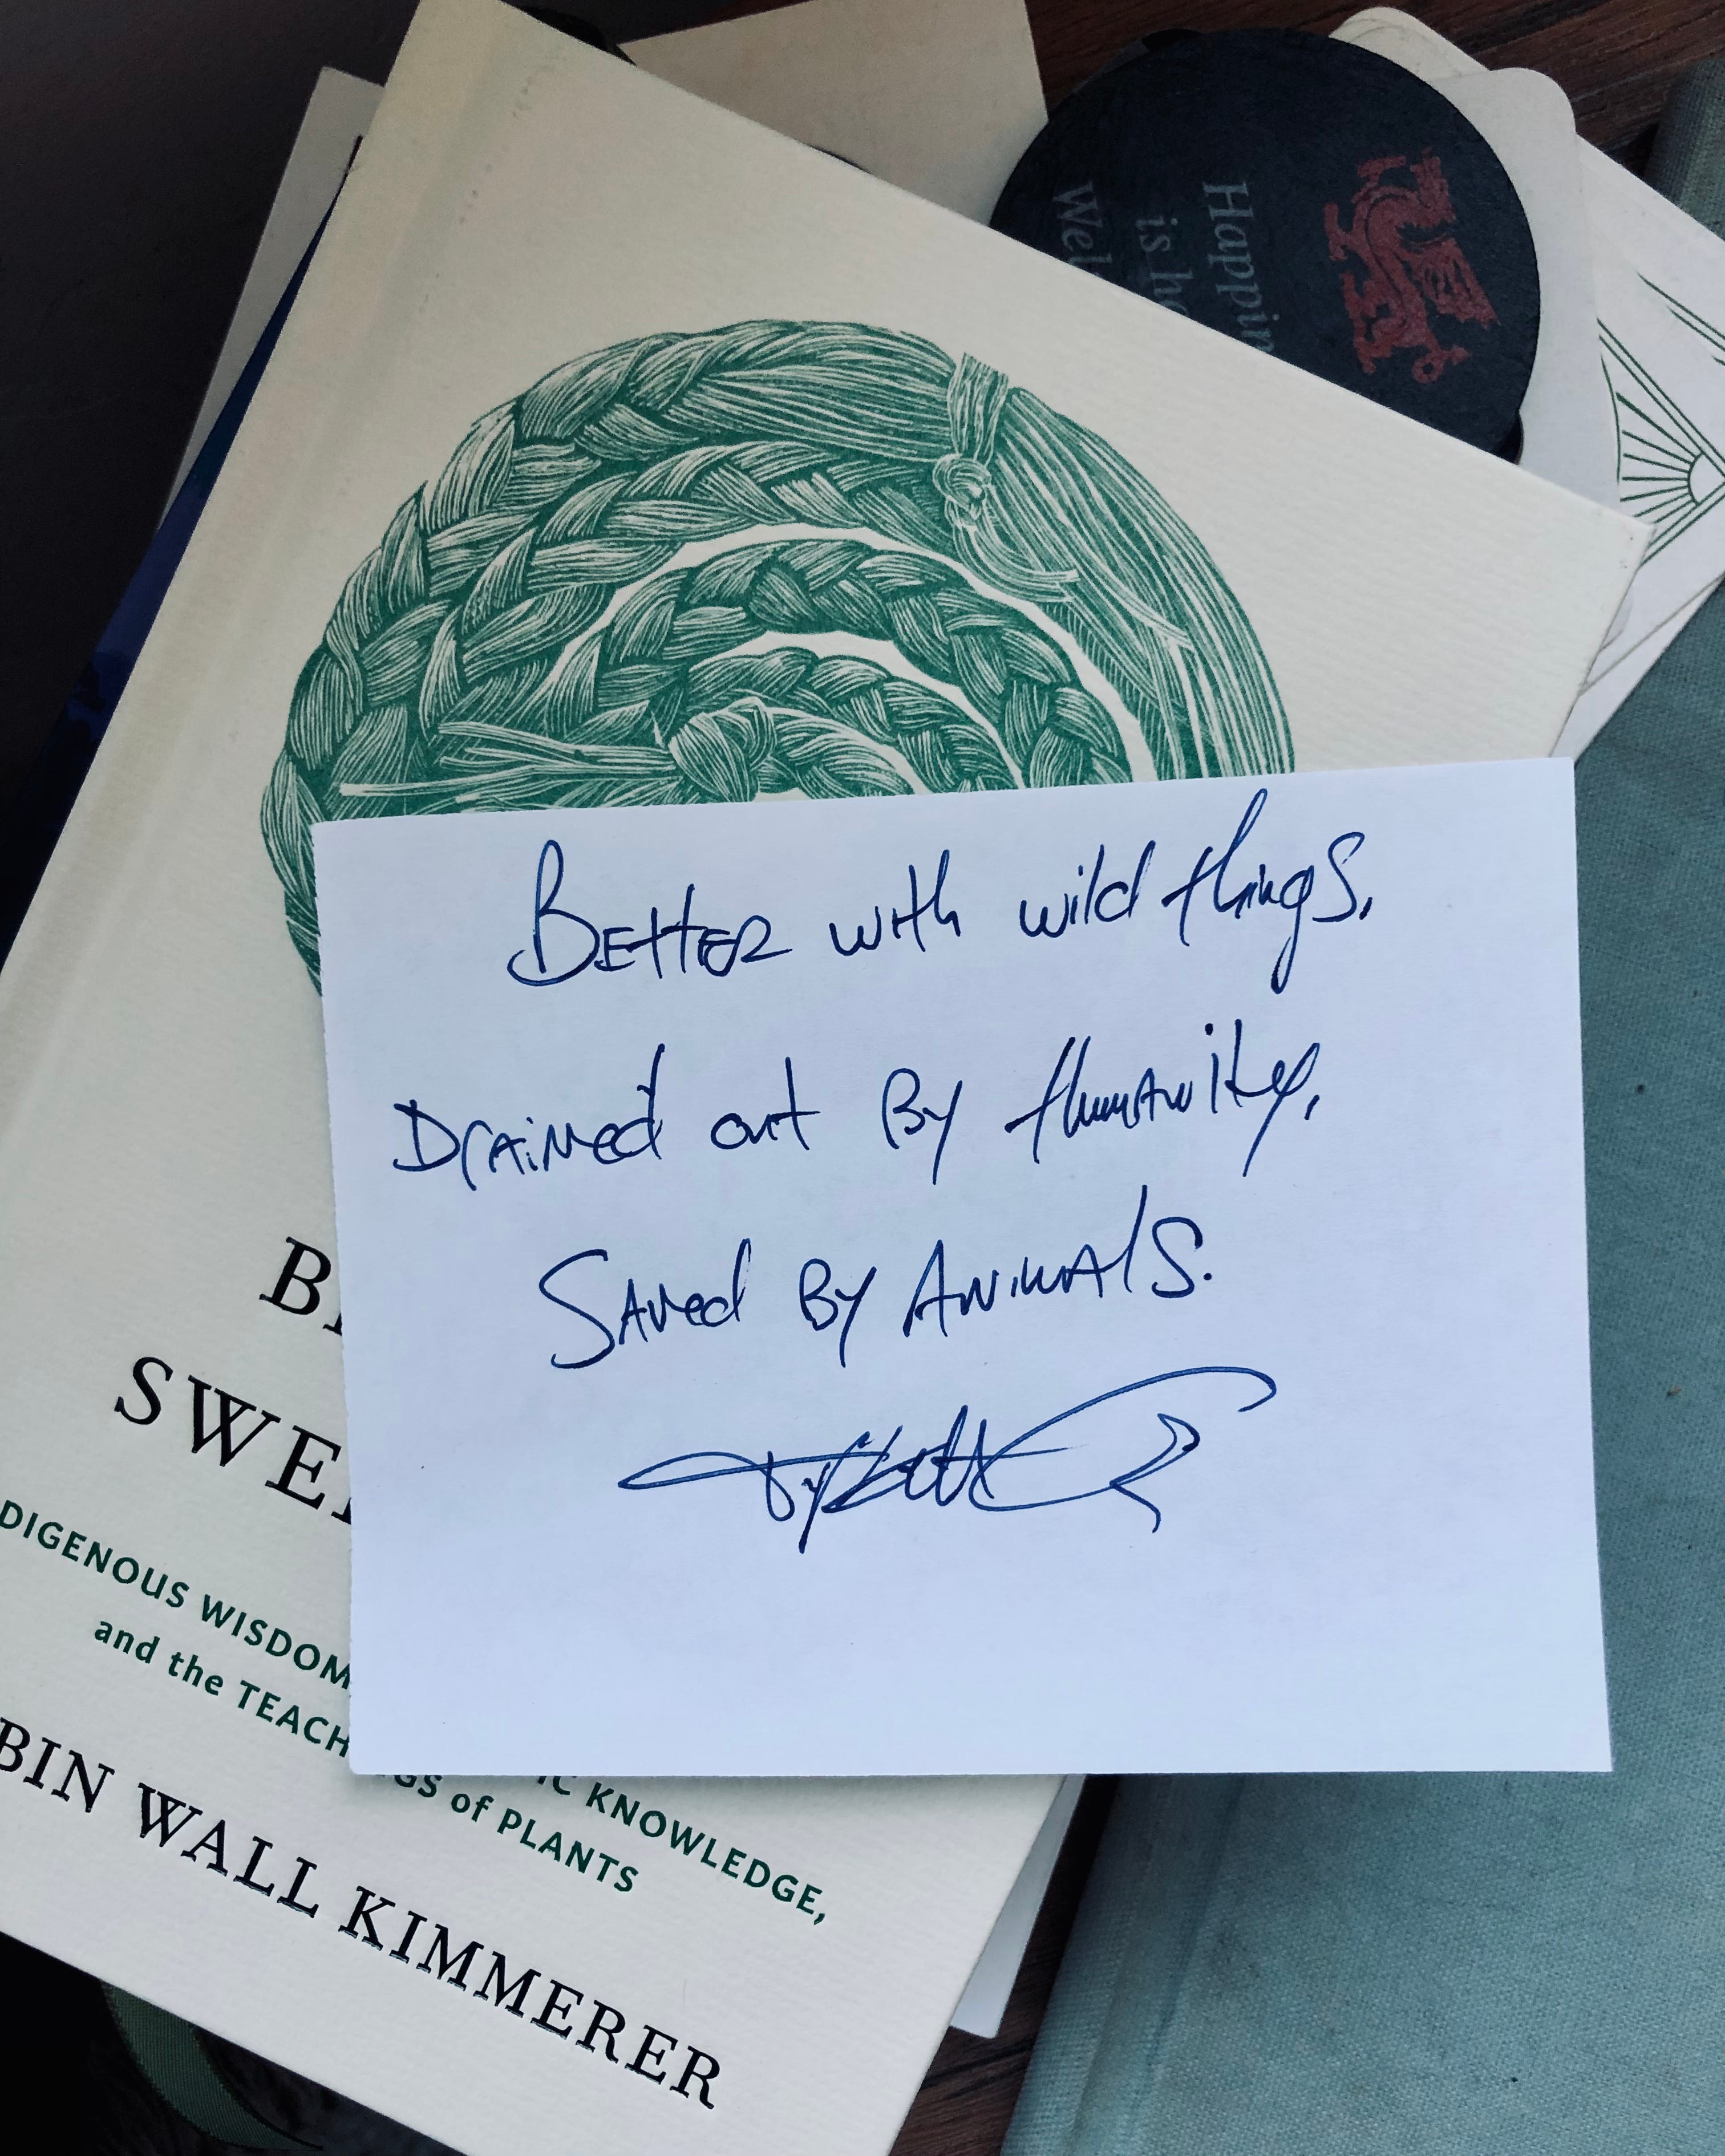 Happin
is ho
Wel
Better with wild things.
Drained out By Humanity,
Saved By Animals.
B
SWE
DIGENOUS WISDOM
IC KNOWLEDGE,
and the TEACH
GS of PLANTS
BIN WALL KIMMERER